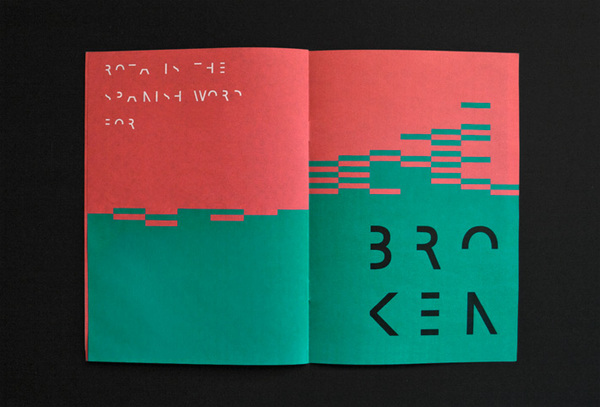 ROTA IS THE
SPANISH WORD
FOR
BRO
KEN